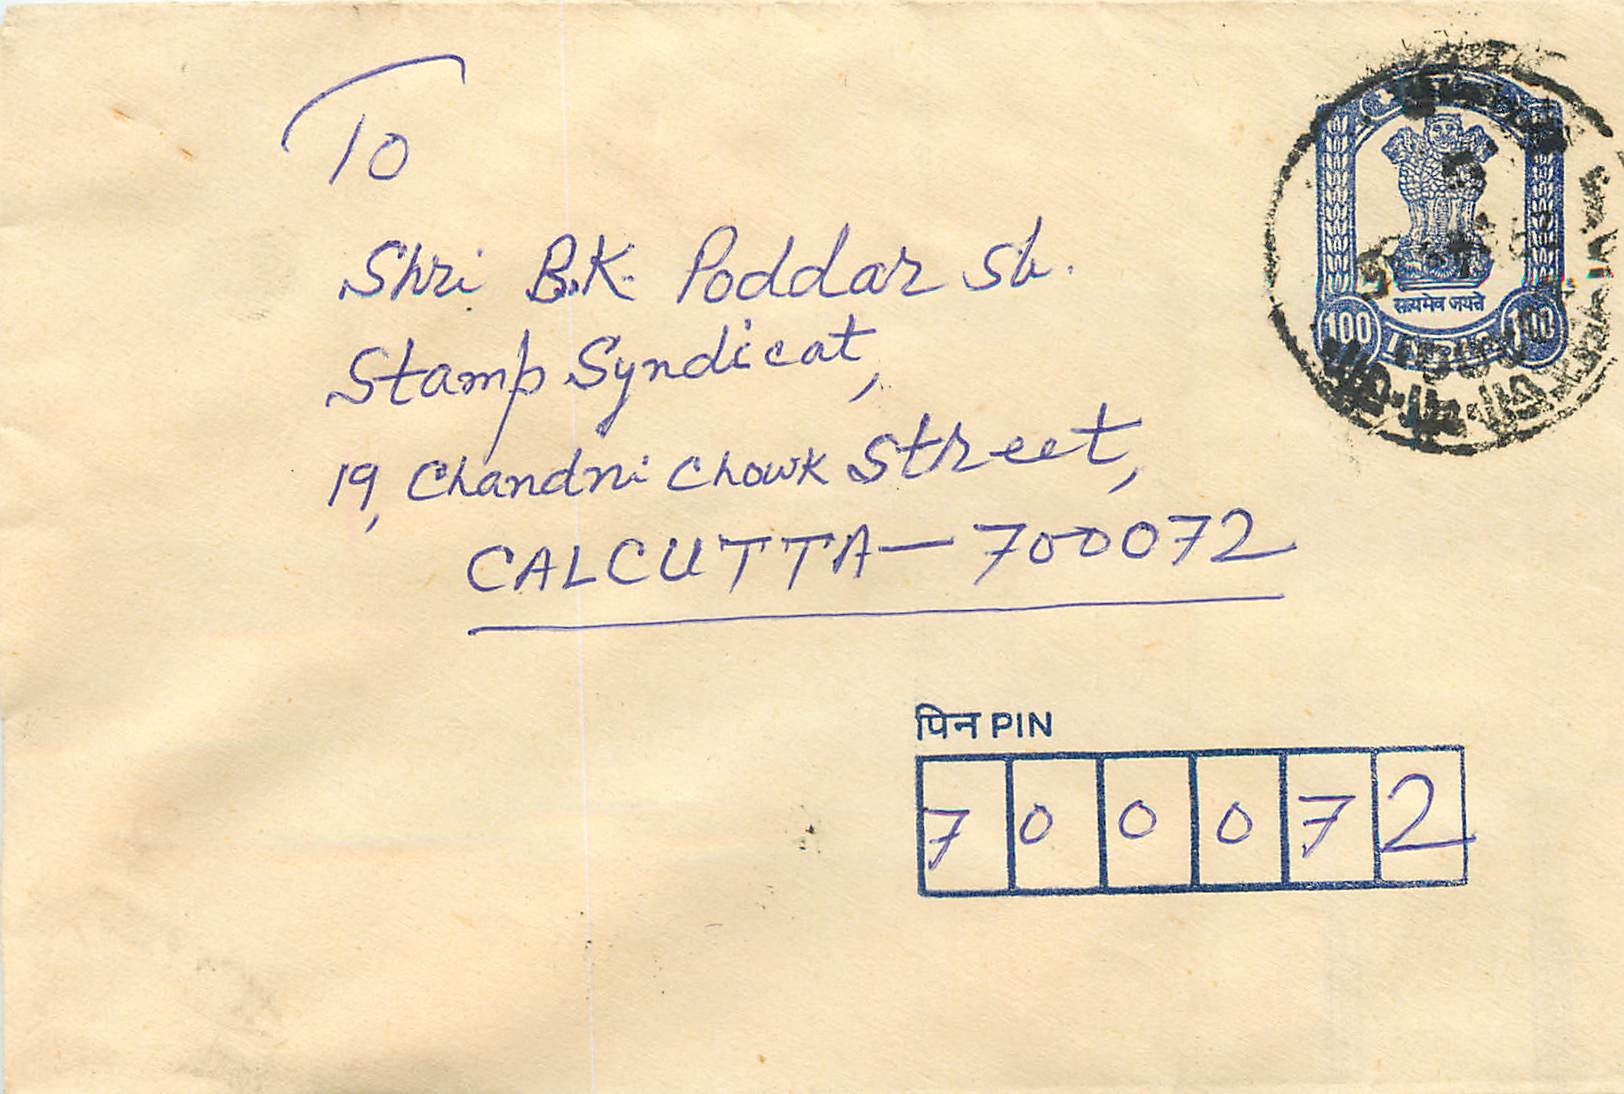 To
Shri B.K. Poddar Sh.
Stamp Syndicat,
19, Chandni Chowk Street,
CALCUTTA — 700072
सत्यमेव जयते
100 100
पिन PIN
7 0 0 0 7 2